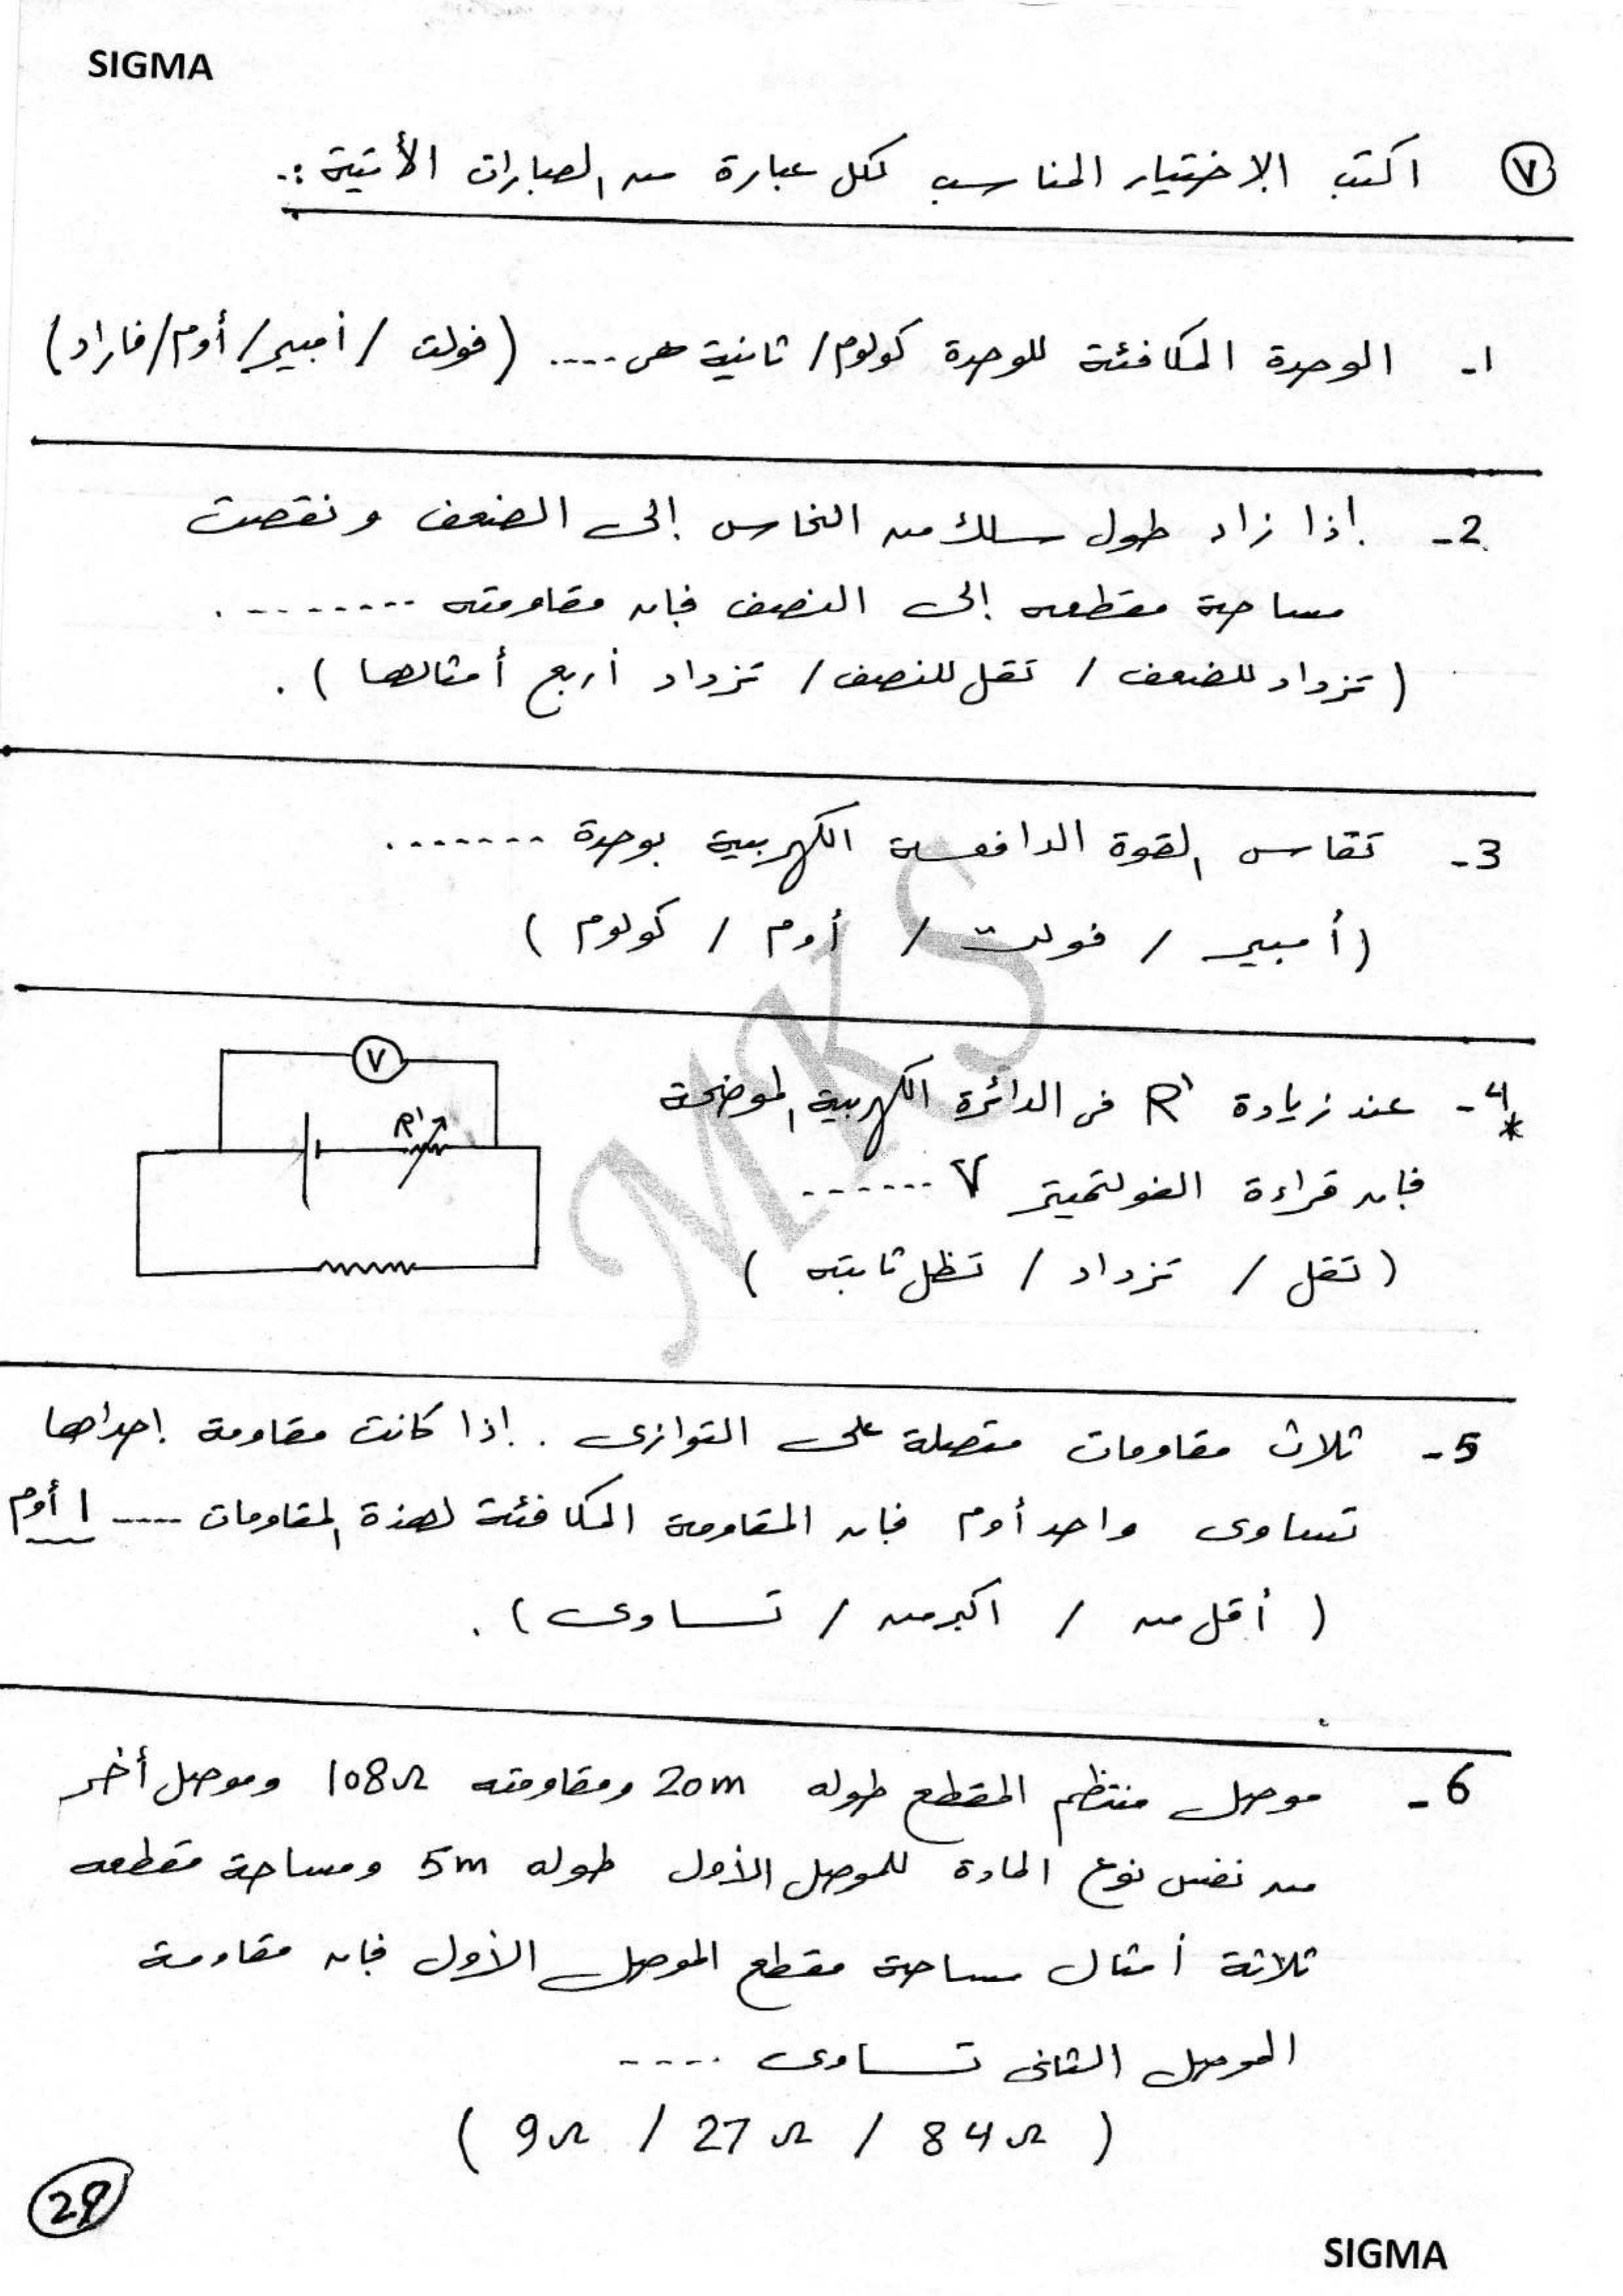 SIGMA
٧ اكتب الإختيار المناسب لكل عبارة من العبارات الأتية :-
١- الوحدة المكافئة للوحدة كولوم/ ثانية هى .... (فولت / أمبير/ أوم/فاراد)
2- إذا زاد طول سلك من النحاس إلى الضعف ونقصت
مساحة مقطعه إلى النصف فإن مقاومته ........ .
(تزداد للضعف / تقل للنصف/ تزداد أربع أمثالها ) .
3- تقاس القوة الدافعة الكهربية بوحدة ....... .
(أمبير / فولت / أوم / كولوم )
4- عند زيادة R' فى الدائرة الكهربية الموضحة
*
فإن قراءة الفولتميتر V ......
( تقل / تزداد / تظل ثابته )
V
R'
5- ثلاث مقاومات متصلة على التوازى . إذا كانت مقاومة إحداها
تساوى واحد أوم فإن المقاومة المكافئة لهذة المقاومات .... ١ أوم
( أقل من / اكبر من / تساوى ) .
6- موصل منتظم المقطع طوله 20m ومقاومته 108Ω وموصل أخر
من نفس نوع المادة للموصل الأول طوله 5m ومساحة مقطعه
ثلاثة أمثال مساحة مقطع الموصل الأول فإن مقاومة
الموصل الثانى تساوى ....
( 9Ω / 27Ω / 84Ω )
29
SIGMA
MKS